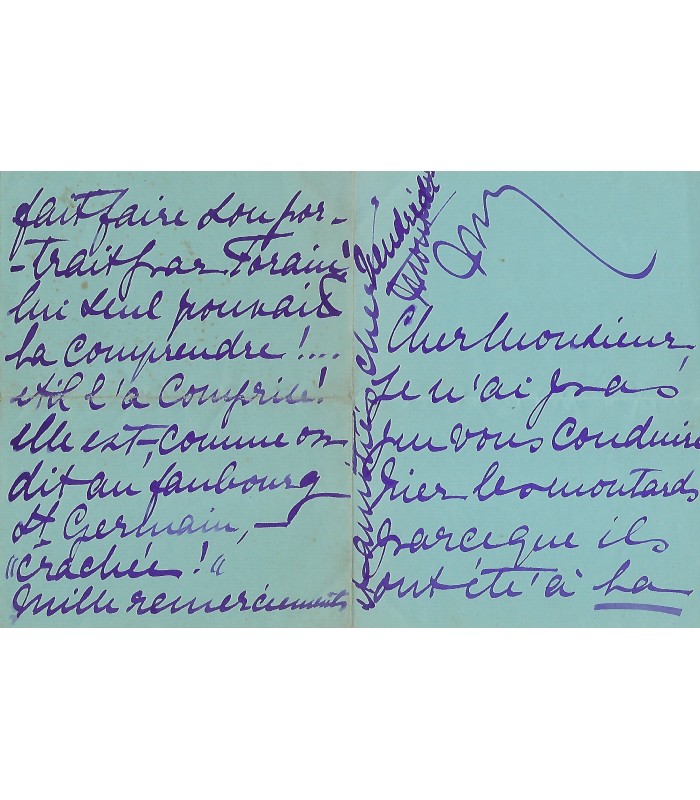 fait faire son por-
-trait par Forain!
lui seul pouvait
la comprendre !....
et il l'a comprise!
elle est, comme on
dit au faubourg
St Germain, —
"crachée !"
Mille remerciements
Vendredi
Cher Monsieur,
Je n'ai pas
pu vous conduire
hier les moutards
parceque ils
ont été à La